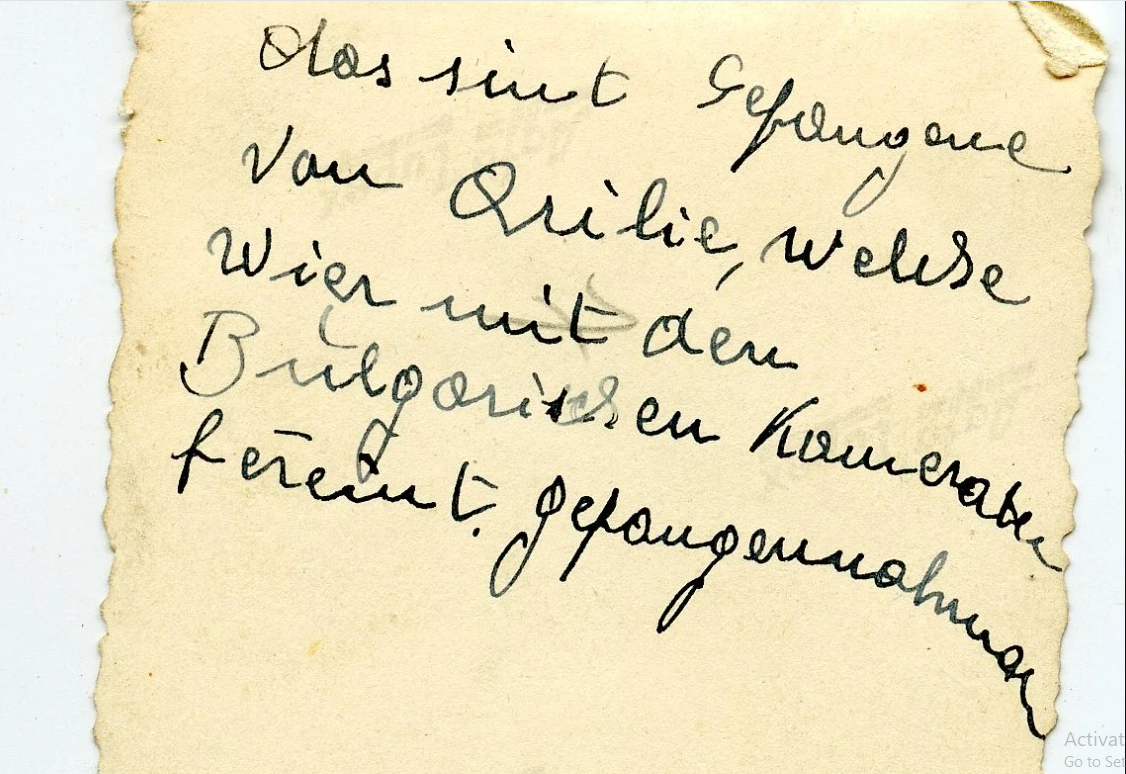 das sint Gefangene
Von Qrilie, welche
Wier mit den
Bulgarischen Kameraten
fereint. gefangennahmen
Activat
Go to Set